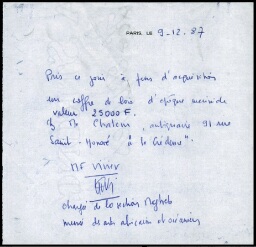 PARIS, LE 9-12.87
Pris ce jour à fins d'acquisition
un coffre de bois d'époque mérinide
valeur 25000 F.
à Mr Chalom, antiquaire 91 rue
Saint-Honoré "à la Crédence".
MF Vivier
chargé de la section Maghreb
musée des arts africains et océaniens